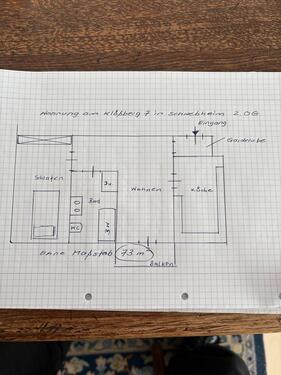 Wohnung am Klößberg 7 in Schwebheim 2.OG
Eingang
Garderobe
Schlafen
Du.
Wohnen
Küche
Bad
WC
Ohne Maßstab
73 m
Balkon